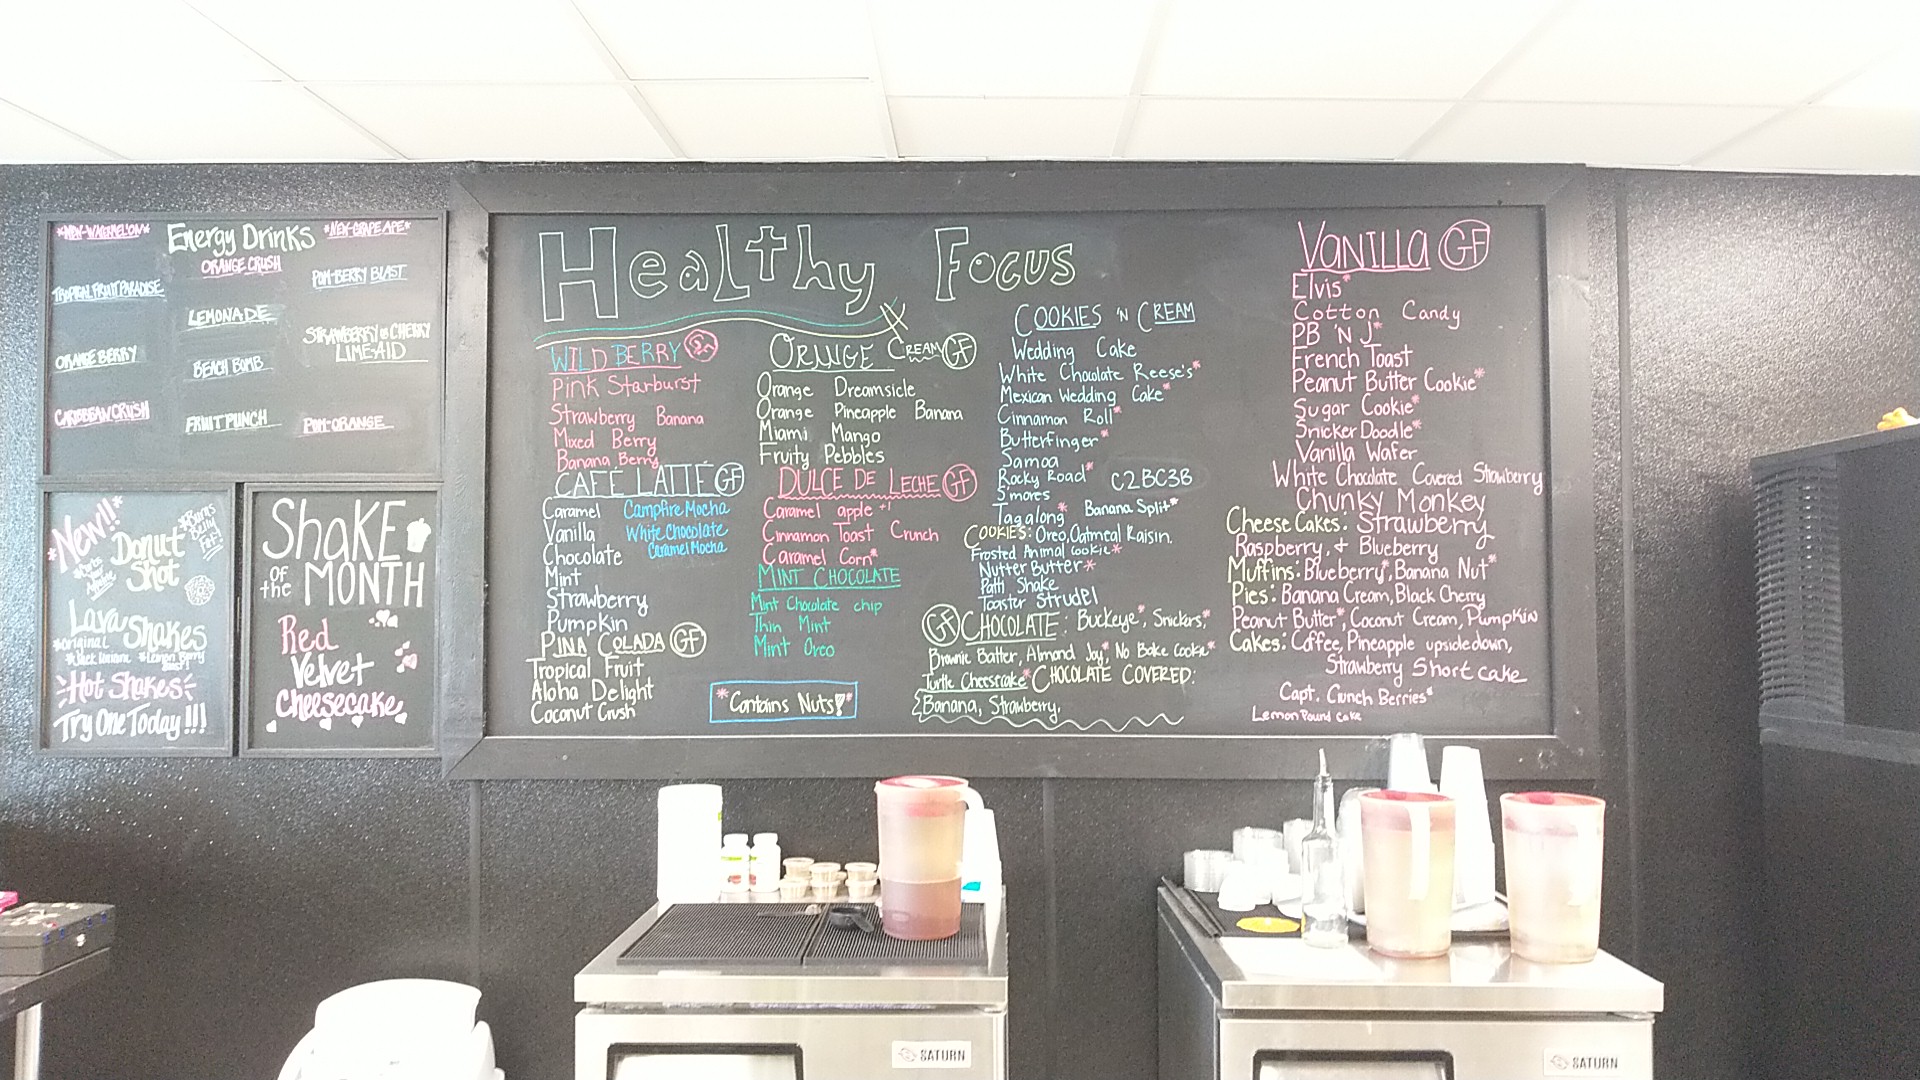 *NEW-WATERMELON*
Energy Drinks
*NEW-GRAPE APE*
ORANGE CRUSH
POM-BERRY BLAST
TROPICAL FRUIT PARADISE
LEMONADE
STRAWBERRY or CHERRY
LIME-AID
ORANGE BERRY
BEACH BOMB
CARIBBEAN CRUSH
FRUIT PUNCH
POM-ORANGE
*New!!*
Donut
Shot
*Burns
Belly
Fat!
Lava Shakes
*Original
Hot Shakes
Try One Today!!!
Shake
of the
MONTH
Red
Velvet
Cheesecake
Healthy Focus
WILD BERRY
Pink Starburst
Strawberry Banana
Mixed Berry
Banana Berry
CAFÉ LATTÉ GF
Caramel
Vanilla
Chocolate
Mint
Strawberry
Pumpkin
Campfire Mocha
White Chocolate
Caramel Mocha
PINA COLADA GF
Tropical Fruit
Aloha Delight
Coconut Crush
ORANGE CREAM GF
Orange Dreamsicle
Orange Pineapple Banana
Miami Mango
Fruity Pebbles
DULCE DE LECHE GF
Caramel apple +1
Cinnamon Toast Crunch
Caramel Corn*
MINT CHOCOLATE
Mint Chocolate chip
Thin Mint
Mint Oreo
*Contains Nuts!*
COOKIES 'N CREAM
Wedding Cake
White Chocolate Reese's*
Mexican Wedding Cake*
Cinnamon Roll*
Butterfinger*
Samoa
Rocky Road*
C2BC3B
S'mores
Tagalong*
Banana Split*
COOKIES: Oreo, Oatmeal Raisin,
Frosted Animal Cookie*
Nutter Butter*
Patti Shake
Toaster Strudel
GF CHOCOLATE: Buckeye*, Snickers*,
Brownie Batter, Almond Joy*, No Bake Cookie*
Turtle Cheesecake* CHOCOLATE COVERED:
Banana, Strawberry,
VANILLA GF
Elvis*
Cotton Candy
PB 'N J*
French Toast
Peanut Butter Cookie*
Sugar Cookie*
Snicker Doodle*
Vanilla Wafer
White Chocolate Covered Strawberry
Chunky Monkey
Cheese Cakes: Strawberry
Raspberry, & Blueberry
Muffins: Blueberry*, Banana Nut*
Pies: Banana Cream, Black Cherry
Peanut Butter*, Coconut Cream, Pumpkin
Cakes: Coffee, Pineapple upsidedown,
Strawberry Shortcake
Capt. Crunch Berries*
Lemon Pound Cake
SATURN
SATURN